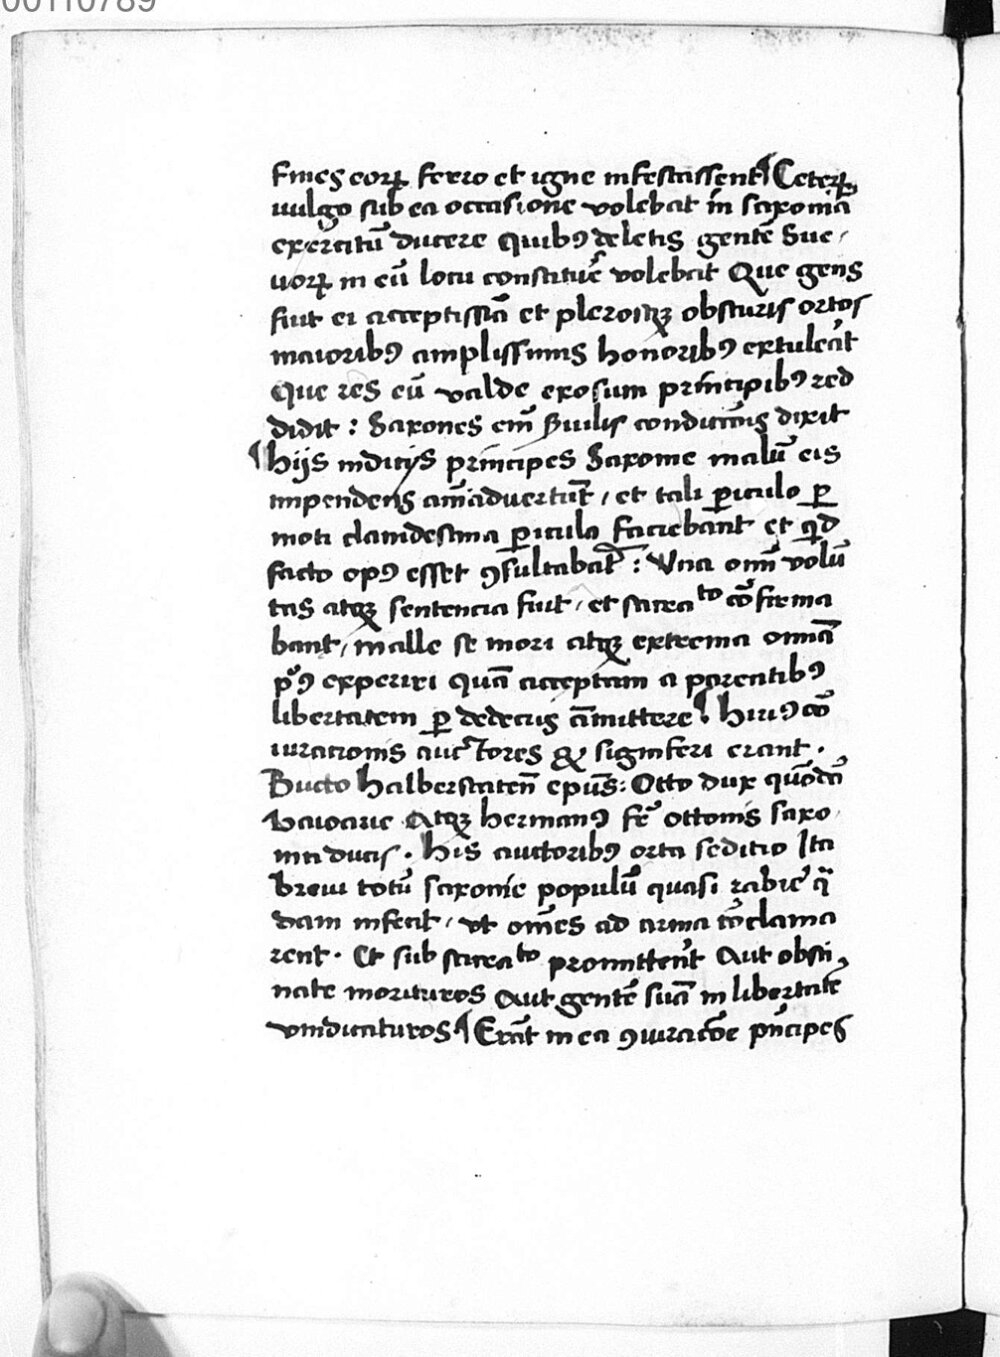 00110789
fines eoꝝ ferro et igne infestassent ¶ Ceteꝝ
uulgo sub ea occasione volebat in saxoniā
exercitū ducere Quibꝯ deletis gentē Sue
uoꝝ in eū locū constituē volebat Que gens
fuit ei acceptissīa et plerosqꝫ obscuris ortos
maioribꝯ amplissimis honoribꝯ extuleāt
Que res eū valde exosum prīncipibꝯ red
didit : Saxones eīm ẜuilis condiciōīs dixit
¶ hijs indicijs prīncipes Saxonie malū eis
impendens aīmaduertūt / et tali ꝑiculo ꝑ
moti clandestina ꝑicula faciebānt et qͥd
facto opꝯ esset ꝯsultabāt : Vna oīm volū
tas atqꝫ sentencia fuit / et sacraᵗᵒ cō firma
bant / malle se mori atqꝫ extrema omnīa
pͥꝯ experiri quā acceptam a parentibꝯ
libertatem ꝑ dedecus āmittere ¶ huiꝯ cō
iurationis auctores & signiferi erant .
Bucto halberstateñ epūs : Otto dux quōdā
baioarie Atqꝫ hermanꝯ fr̄ ottonis saxo
nie ducis . his auctoribꝯ orta seditio Ita
breui totū saxonie populū quasi rabie q̄
dam infecit / vt om̄es ad arma cōclama
rent . Et sub sacraᵗᵒ promitterēt Aut obsti
nate morituros Aut gentē suā in libertatē
vindicaturos ¶ Erāt in ea ꝯiuracōe pn̄cipes